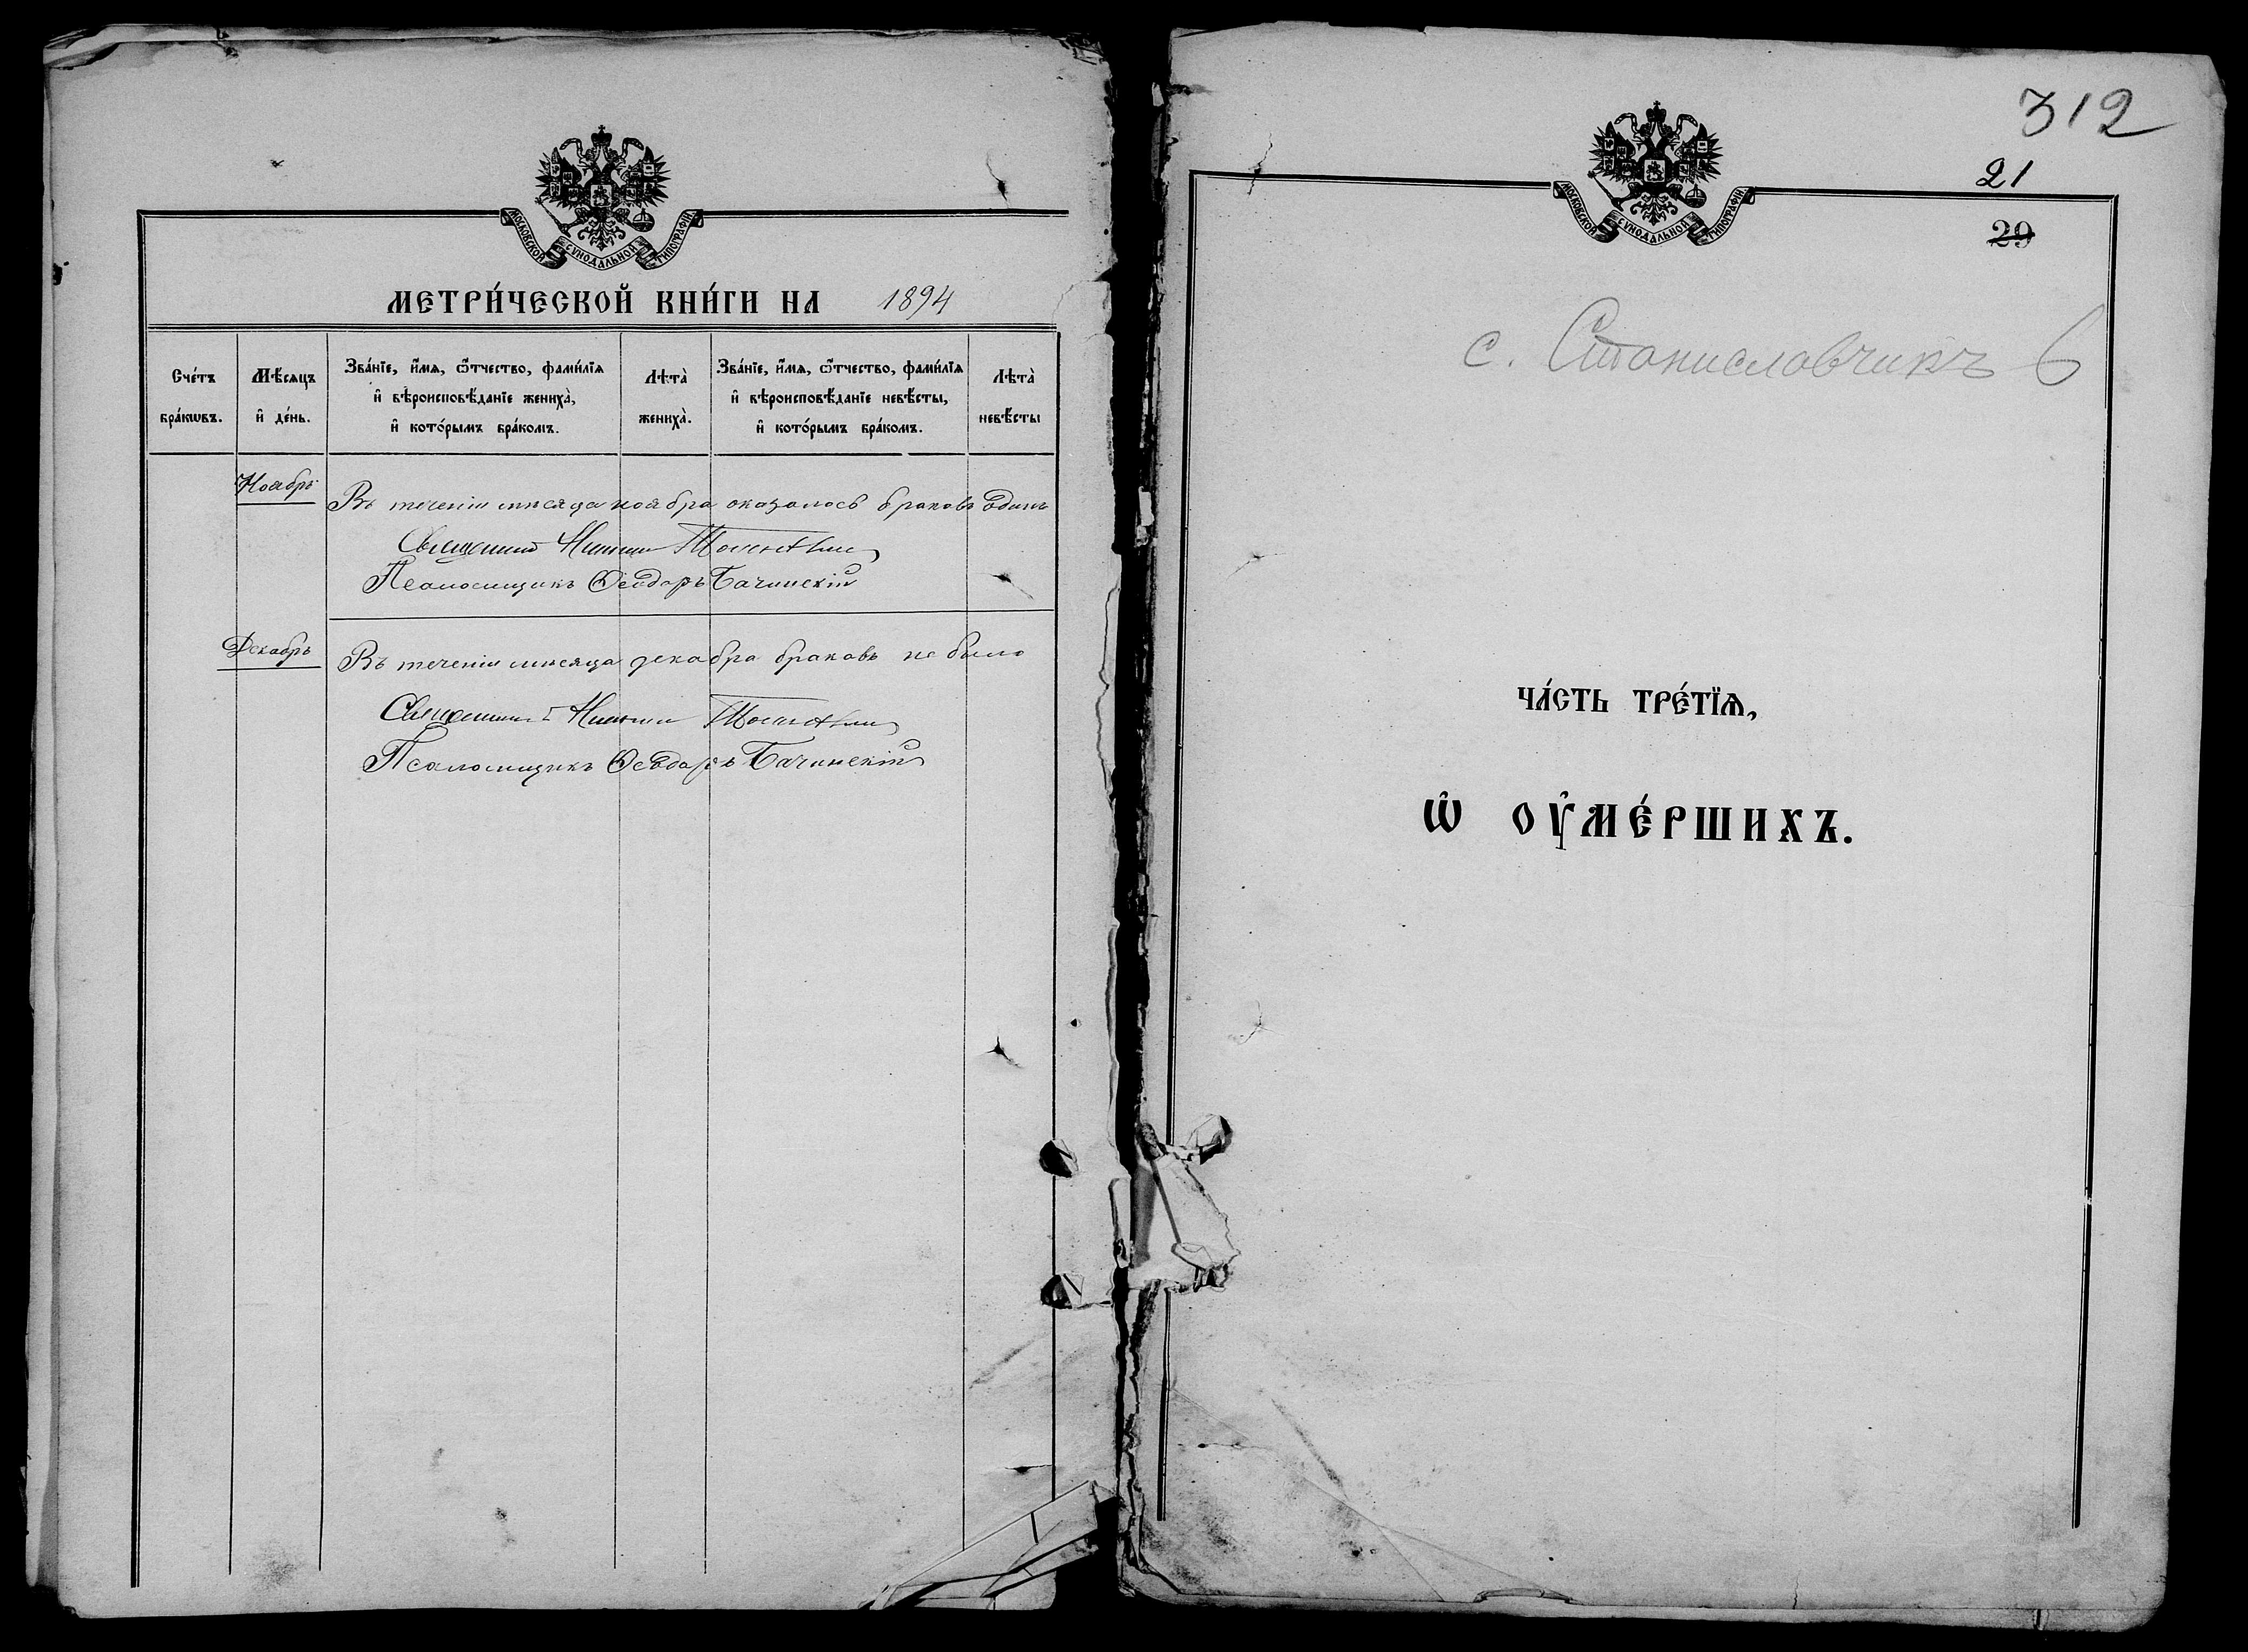 МОСКОВСКОЙ СѴНОДАЛЬНОЙ ТИПОГРАФІИ
МЕТРИ́ЧЕСКОЙ КНИ́ГИ НА 1894
Сче́тъ бра́кѡвъ.
Мѣ́сяцъ и҆ де́нь.
Зва́нїе, и҆́мѧ, ѻ҆́тчество, фами́лїѧ
и҆ вѣроисповѣ́данїе жениха̀,
и҆ кото́рымъ бра́комъ.
Лѣта̀ жениха̀.
Зва́нїе, и҆́мѧ, ѻ҆́тчество, фами́лїѧ
и҆ вѣроисповѣ́данїе невѣ́сты,
и҆ кото́рымъ бра́комъ.
Лѣта̀ невѣ́сты
Ноябрь
Въ теченіи мѣсяца ноября оказалось браковъ одинъ
Священникъ
Псаломщикъ Ѳеодоръ Бачинскій
Декабрь
Въ теченіи мѣсяца декабря браковъ не было
Священникъ
Псаломщикъ Ѳеодоръ Бачинскій
312
21
МОСКОВСКОЙ СѴНОДАЛЬНОЙ ТИПОГРАФІИ
29
с. Станиславчикъ 6
ЧА́СТЬ ТРЕ́ТЇѦ,
Ѡ҆ ОУ҆МЕ́РШИХЪ.